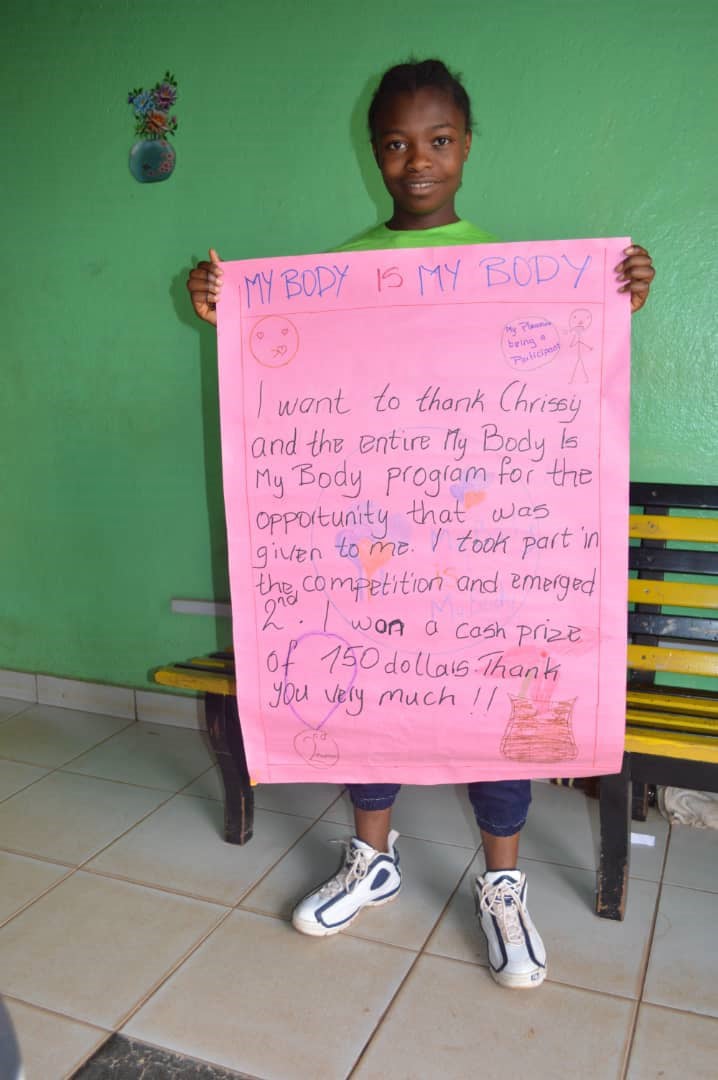 MY BODY IS MY BODY
My Pleasure
being a
Participant
I want to thank Chrissy
and the entire My Body Is
My Body program for the
opportunity that was
given to me. I took part in
the competition and emerged
2nd. I won a cash prize
of 150 dollars. Thank
you very much !!
2nd